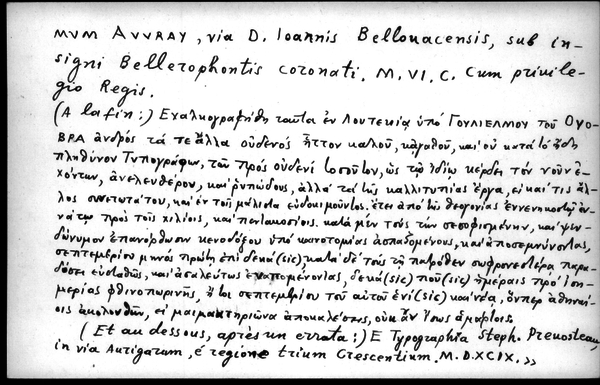 MVM AVVRAY, via D. Ioannis Bellouacensis, sub in-
signi Bellerophontis coronati. M. VI. C. Cum priuile-
gio Regis.
(A la fin:) Εχαλκογραφήθη ταῦτα ἐν Λουτεκίᾳ ὑπό ΓΟΥΛΙΕΛΜΟΥ τοῦ ΟΥΟ-
ΒΡΑ ἀνδρός τά τε ἄλλα οὐδενός ἧττον καλοῦ, κἀγαθοῦ, καί οὐ κατά τό ἤδη
πληθύνον Τυπογράφων, τῶν πρός οὐδενί τοσοῦτον, ὡς τῷ ἰδίῳ κέρδει τόν νοῦν ἐ-
χόντων, ἀνελευθέρου, καί ῥυπώδους, ἀλλά τά τῆς καλλιτυπίας ἔργα, εἰ καί τις ἄλ-
λος συνετωτάτου, καί ἐν τοῖς μάλιστα εὐδοκιμοῦντος. ἔτει ἀπό τῆς θεογονίας ἐννενηκοστῷ ἐν-
νάτῳ πρός τοῖς χιλίοις, καί πεντακοσίοις. κατά μέν τούς τήν σεσοφισμένην, καί ψευ-
δώνυμον ἐπανόρθωσιν κενοδόξου ὑπό καινοτομίας ἀσπαζομένους, καί ἀποσεμνύνοντας,
σεπτεμβρίου μηνός πρώτῃ ἐπί δεκά (sic), κατά δέ τούς τῇ πατρόθεν σωφρονεστέρᾳ παρα-
δόσει εὐσταθῶς, καί ἀσαλεύτως ἐναπομένοντας, δεκά (sic) ποῦ (sic) ἡμέραις πρό ἰση-
μερίας φθινοπωρινῆς, ἤτοι σεπτεμβρίου τοῦ αὐτοῦ ἑνί (sic) καί νέᾳ, ὅνπερ ἀθηναί-
οις ἀκολουθῶν, εἰ μαιμακτηριῶνα ἀποκαλέσεις, οὐκ ἄν ἴσως ἁμάρτοις.
(Et au dessous, après un errata:) E Typographia Steph. Preuosteau,
in via Aurigarum, é regione trium Crescentium. M.D.XCIX. »